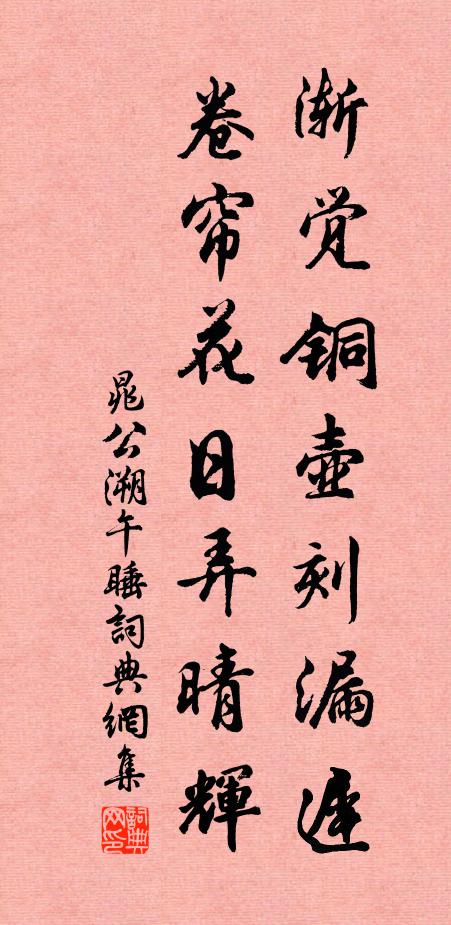 渐觉铜壶刻漏迟
卷帘花日弄晴輝
晁公溯午睡詞典網集
詞典网印